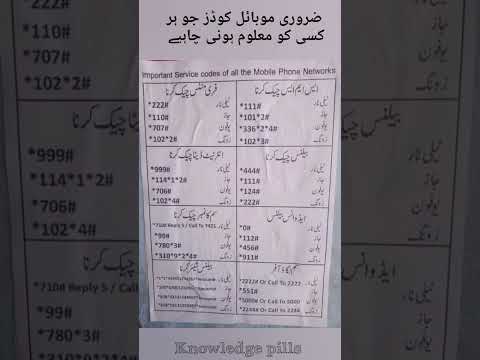 ضروری موبائل کوڈز جو ہر
کسی کو معلوم ہونی چاہیے
Important Service codes of all the Mobile Phone Networks
ایس ایم ایس چیک کرنا
ٹیلی نار *111#
جاز *101*2#
یوفون *336*2*4#
زونگ *102*3#
فری منٹس چیک کرنا
ٹیلی نار *222#
جاز *110#
یوفون *707#
زونگ *102*2#
بیلنس چیک کرنا
ٹیلی نار *444#
جاز *111#
یوفون *124#
زونگ *222#
انٹرنیٹ ڈیٹا چیک کرنا
ٹیلی نار *999#
جاز *114*1*2#
یوفون *706#
زونگ *102*4#
ایڈوانس بیلنس
ٹیلی نار *0#
جاز *112#
یوفون *456#
زونگ *911#
سم کا نمبر چیک کرنا
ٹیلی نار *710# Reply 5 / Call To 7421
جاز *99#
یوفون *780*3#
زونگ *310*9*2*4#
سم لگاؤ آفر
ٹیلی نار *2222# Or Call To 2222
جاز *551#
یوفون *5000# Or Call To 5000
زونگ Or Call To
بیلنس شیئر کرنا
ٹیلی نار
جاز
یوفون
زونگ
Knowledge pills